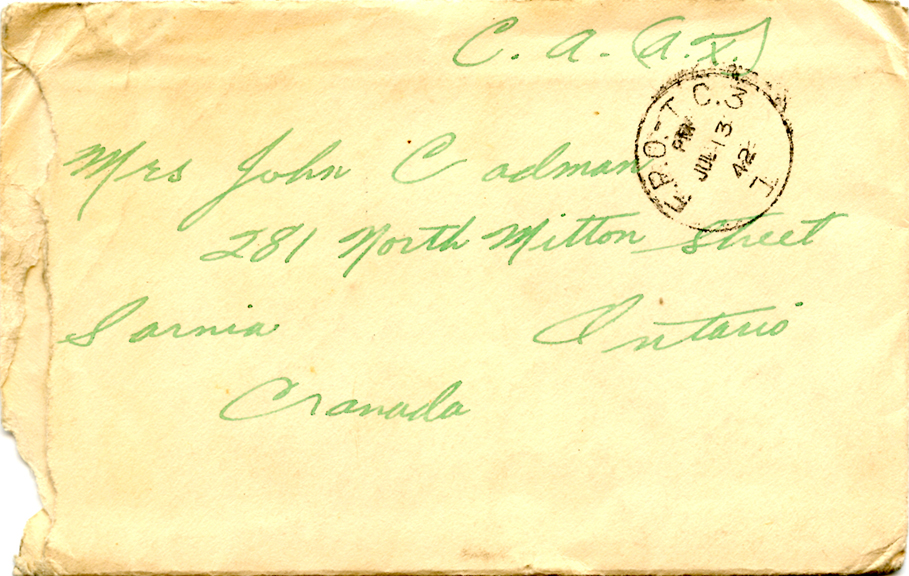 C. A. (A.F.)
F.P.O.-T.C.3
PM
JUL 13
42
T
Mrs John Cadman
281 North Mitton Street
Sarnia Ontario
Canada